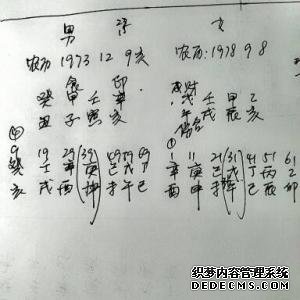 男 女
农历 1973 12 9 亥 农历:1978 9 8
食 印 财
癸 甲 壬 辛 戊 壬 甲 乙
丑 子 寅 亥 午 戌 辰 亥
9 19 29 39 49 59 69 1 11 21 31 41 51 61
癸 壬 辛 庚 己 戊 丁 辛 庚 己 戊 丁 丙 乙
亥 戌 酉 午 巳 酉 申 巳 辰 卯
织梦内容管理系统
DEDECMS.COM